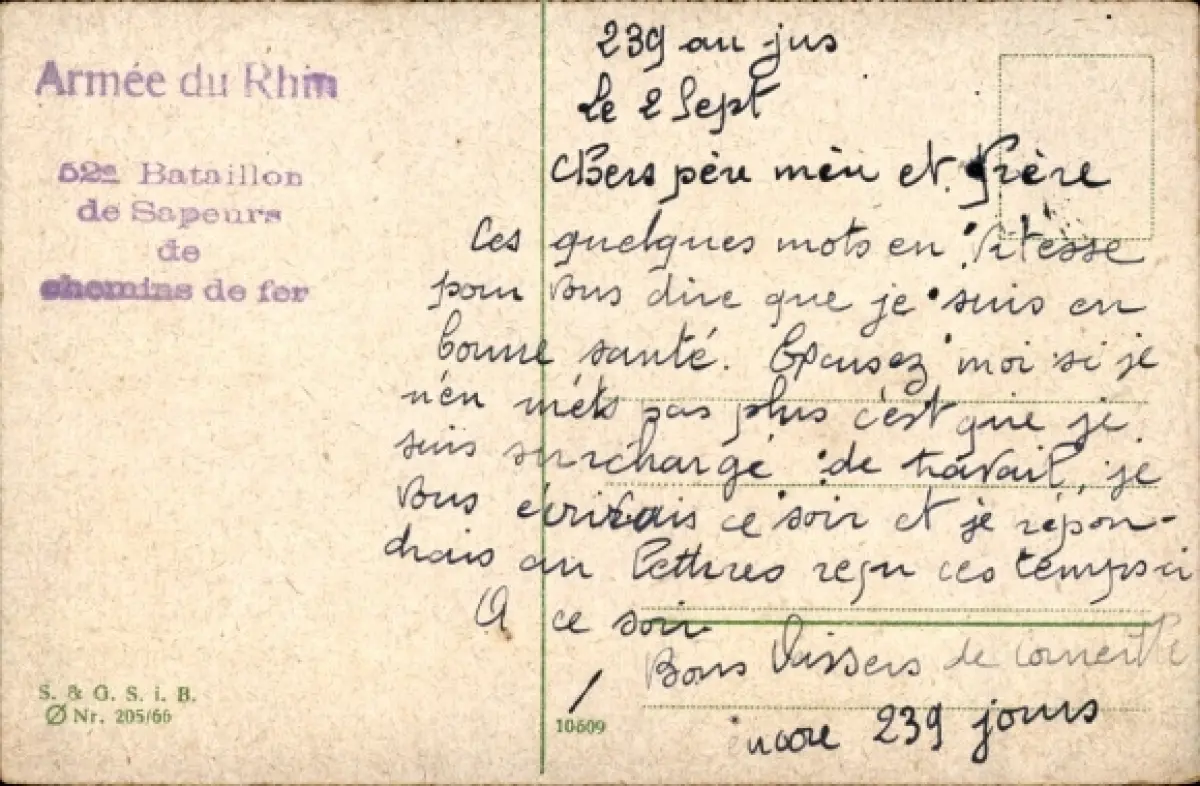 Armée du Rhin
52e Bataillon
de Sapeurs
de
chemins de fer
239 au jus
Le 2 Sept
Chers père mèr et frère
Ces quelques mots en Vitesse
pour Vous dire que je suis en
bonne santé. Excusez moi si je
n'en méts pas plus c'est que je
suis surchargé de travail, je
Vous écrirais ce soir et je répon-
drais au lettres reçu ces temps ci
A ce soir
Bons baisers de
encore 239 jours
S. & G. S. i. B.
Nr. 205/66
10609